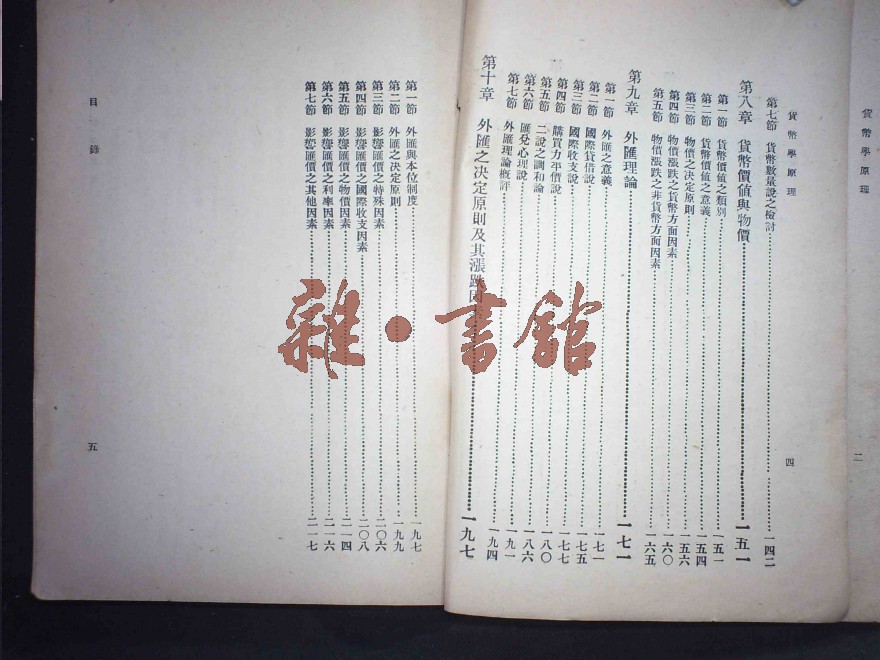 貨幣學原理
二
貨幣學原理
四
第七節 貨幣數量說之檢討 一四二
第八章 貨幣價值與物價 一五一
第一節 貨幣價值之類別 一五一
第二節 貨幣價值之意義 一五四
第三節 物價之決定原則 一五六
第四節 物價漲跌之貨幣方面因素 一六〇
第五節 物價漲跌之非貨幣方面因素 一六五
第九章 外匯理論 一七一
第一節 外匯之意義 一七一
第二節 國際貸借說 一七五
第三節 國際收支說 一七七
第四節 購買力平價說 一八〇
第五節 二說之調和論 一八六
第六節 匯兌心理說 一九一
第七節 外匯理論概評 一九四
第十章 外匯之決定原則及其漲跌因 一九七
第一節 外匯與本位制度 一九七
第二節 外匯之決定原則 一九九
第三節 影響匯價之特殊因素 二〇六
第四節 影響匯價之國際收支因素 二〇八
第五節 影響匯價之物價因素 二一四
第六節 影響匯價之利率因素 二一六
第七節 影響匯價之其他因素 二一七
目錄
五
雜·書館